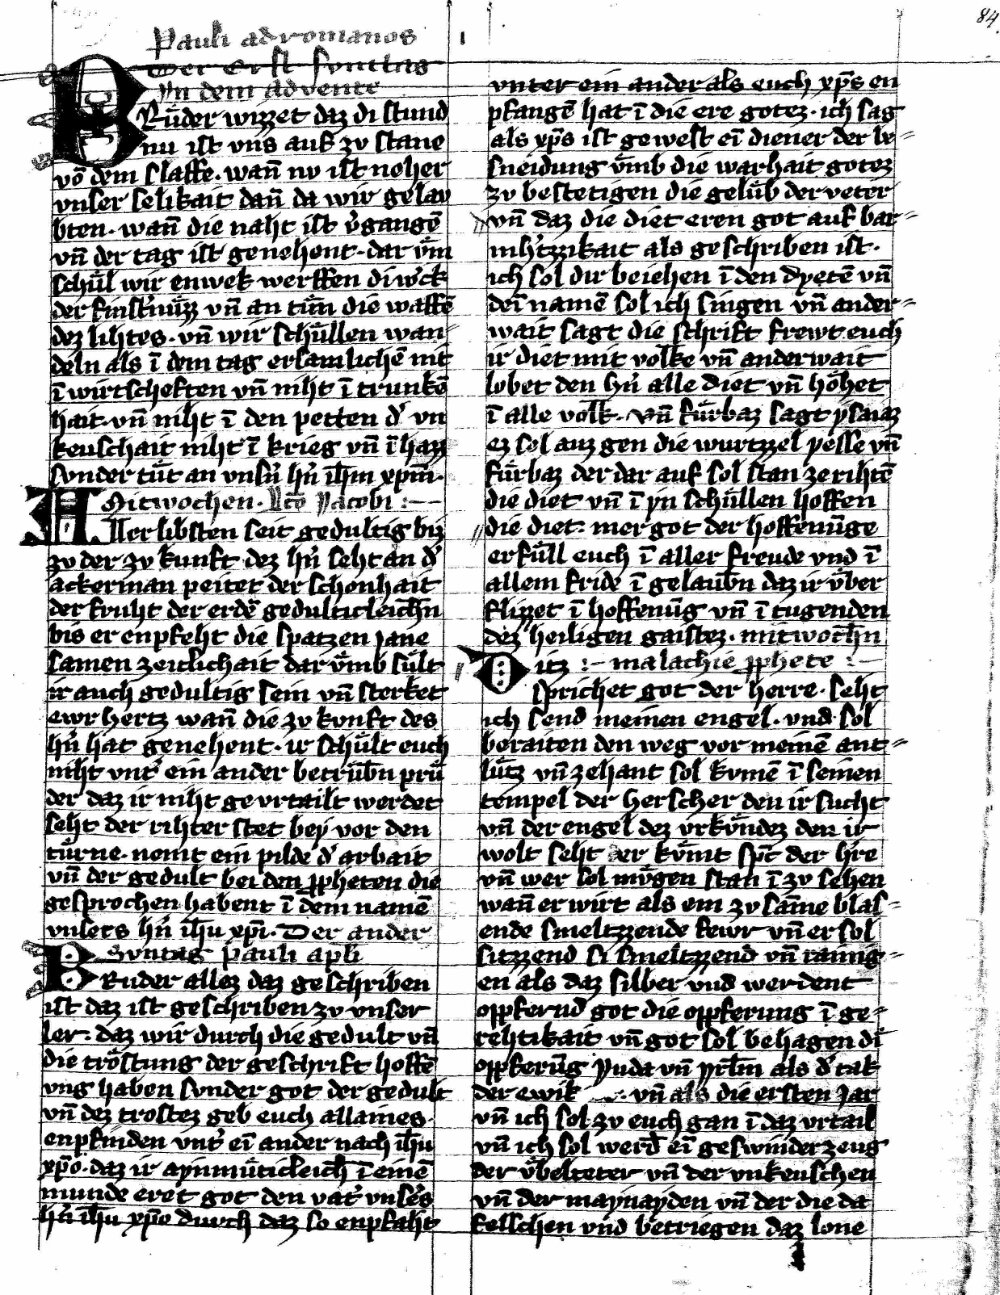 84
Pauli ad romanos
Der Erst Suntag
In dem advente
BRüder wizzet daz di stund
nu ist vns auf zv stane
vō dem slaffe. wann̄ nv ist noher
vnser selikait dann̄ da wir gelav
bten. wann̄ die naht ist v̓gangē
vn̄ der tag ist genehent. dar vm̄
schül wir enwek werffen di w̓ck
der finst̓nüzz vn̄ an tün̄ die waffē
dez lihtes. vn̄ wir schüllen wan
deln als ī dem tag ersamlichē nit
ī wirtscheften vn̄ niht ī trunkē
hait. vn̄ niht ī den petten d̓ vn
keuschait niht ī krieg vn̄ ī hazz
svnder tüt an vnsn̓ hn̓ ih̄m xp̄m.
Mitwochen. Jacobi :~
ALler libsten seit gedultig biz
zv der zv kunft dez hn̓ seht an d̓
ackerman peitet der schonhait
der fruht der erdē gedulticleich̄n
bis er enpfeht die spatzen Jane
samen zeitlichait dar vmb sült
ir auch gedultig sein vn̄ sterket
ewr hertz wann̄ die zv kvnft des
hn̓ hat genehent. ir schült euch
niht vnt̓ ein ander betrüb̄n prü
der daz ir niht gevrtailt werdet
seht der rihter stet bey vor den
türne. nemt ein pilde d̓ arbait
vn̄ der gedult bei den ꝓpheten die
gesprochen habent ī dem namē
vnsers hn̓ ih̄u xp̄i. Der ander
Svntag Pauli apl̄i
BRuder allez daz geschriben
ist daz ist geschriben zv vnser
ler: daz wir durch die gedult vn̄
die tröstung der geschrift hoffē
vng haben svnder got der gedult
vn̄ dez trostez geb euch allaines
enpfinden vnt̓ eī ander nach ih̄u
xp̄o. daz ir aynmüticleich ī eine
munde eret got den vat̓ vnsers
hn̓ ih̄u xp̄o durch daz so enpfaht
vnter ein ander als euch xp̄s en
pfangē hat ī die ere gotez. ich sag
als xp̄s ist gewest eī diener der be
sneidung vmb die warhait gotez
zv bestetigen die gelüb der veter
vn̄ daz die diet eren got auf bar
mh̓tzzikait als geschriben ist.
ich sol dir beiehen ī den dyetē vn̄
deī namē sol ich singen vn̄ ander
wait sagt die schrift frewt euch
ir diet mit volke vn̄ anderwait
lobet den hn̓ alle diet vn̄ höhet
ī alle volk. vn̄ fürbaz sagt ysaiaz
ez sol auz gen die wurtzzel yesse vn̄
fürbaz der dar auf sol stan ze rihtē
die diet vn̄ ī yn schüllen hoffen
die diet: mer got der hoffenüge
erfüll euch ī aller freude vnd ī
allem fride ī gelaub̄n daz ir vber
flizzet ī hoffenüg vn̄ ī tugenden
dez heiligen gaistez. mitwoch̄n
DItz :~ malachie ꝓphete :~
sprichet got der herre. seht
ich send meinen engel. vnd sol
beraiten den weg vor meinē ant
lütz vn̄ zehant sol kvmē ī seinen
tempel der herscher den ir sucht
vn̄ der engel dez vrkündez den ir
wolt seht er kümt spc̄t der hre
vn̄ wer sol mügen stan ī zv sehen
wann̄ er wirt als ein zv sam̄e blas
ende smeltzzende fewr vn̄ er sol
sitzzend si smeltzzend vn̄ rainig
en als daz silber vnd werdent
oppfernd got die oppferung ī ge
rehtikait vn̄ got sol behagen di
oppferūg yuda vn̄ yrl̄m als d̓ tak
der ewik vn̄ als die ersten Jar
vn̄ ich sol zv euch gan ī daz vrtail
vn̄ ich sol werd̄ eī geswinder zeug
der vbelteter vn̄ der vnkeuschen
vn̄ der maynayden vn̄ der die da
felschen vnd betriegen daz lone